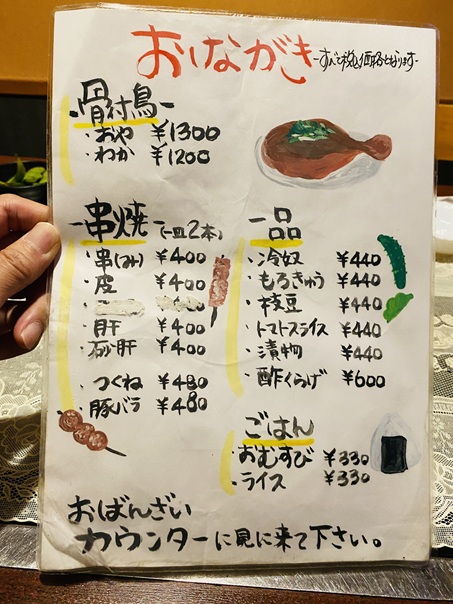 おしながき -すべて税込価格となります-
-骨付鳥-
・おや ¥1300
・わか ¥1200
-串焼(一皿2本)
・串(み) ¥400
・皮 ¥400
・肝 ¥400
・砂肝 ¥400
・つくね ¥480
・豚バラ ¥480
一品
・冷奴 ¥440
・もろきゅう ¥440
・枝豆 ¥440
・トマトスライス ¥440
・漬物 ¥440
・酢くらげ ¥600
ごはん
・おむすび ¥330
・ライス ¥330
おばんざい
カウンターに見に来て下さい。